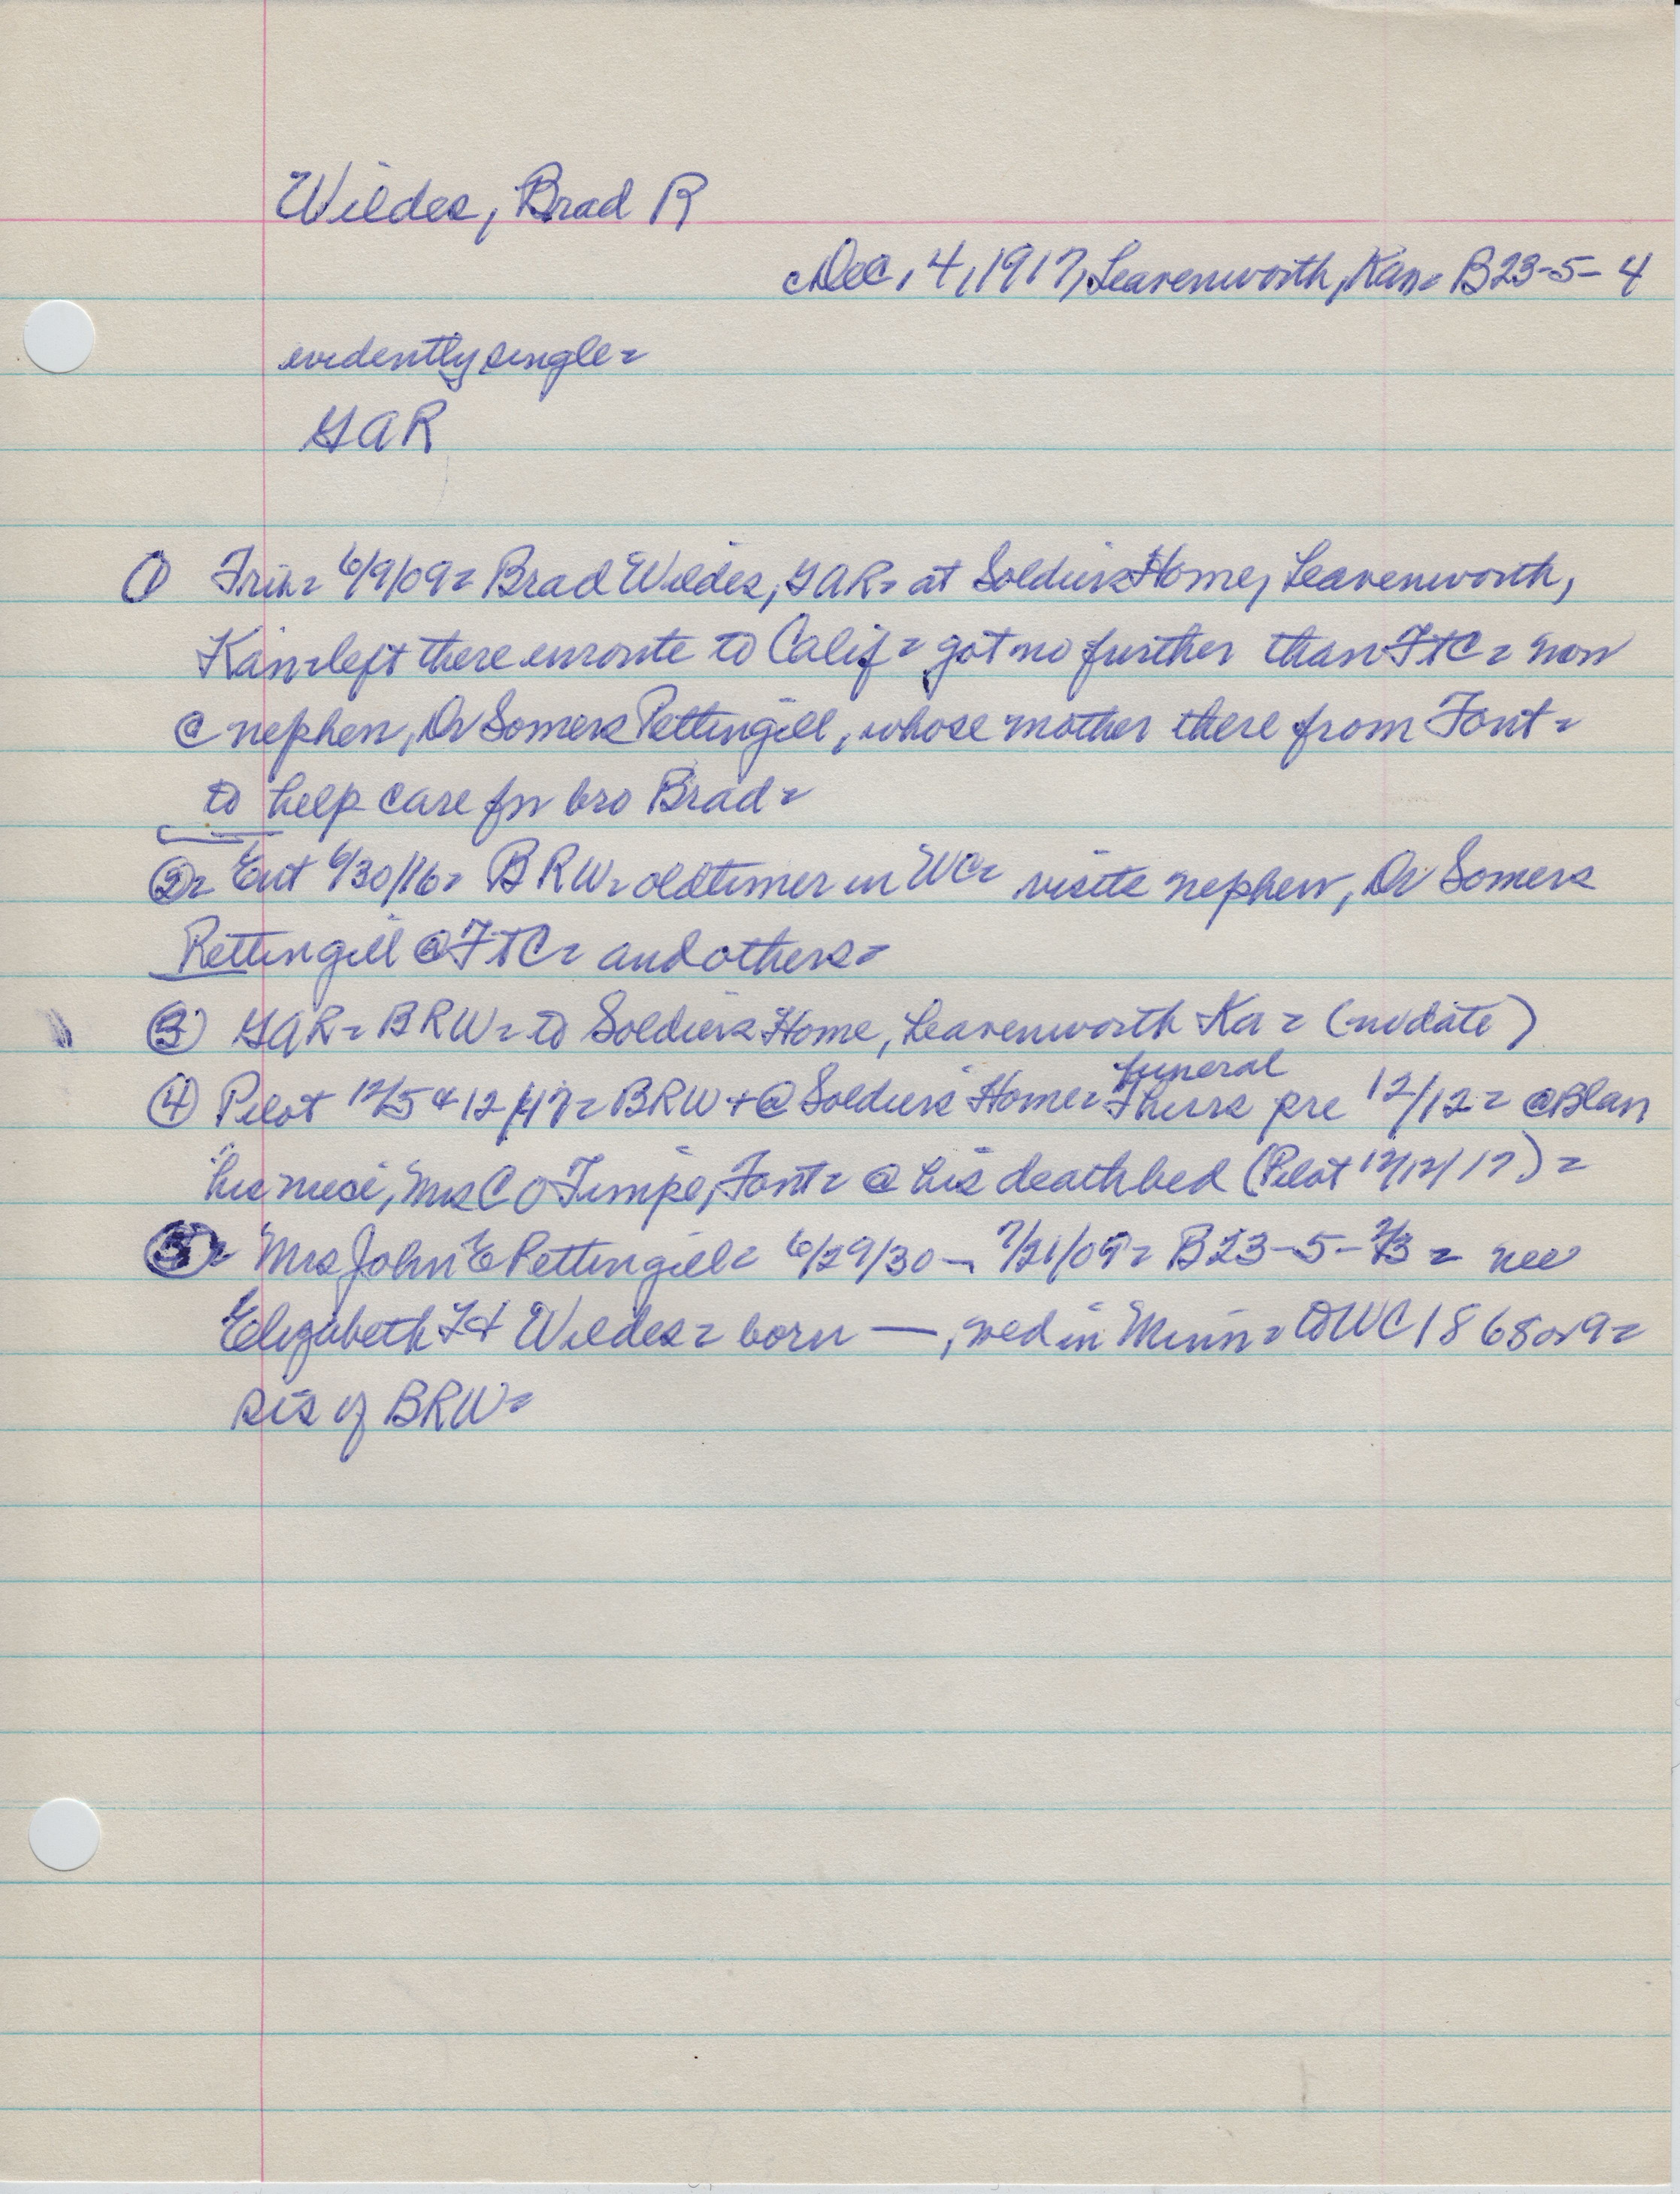 Wildes, Brad R
Dec, 4, 1917, Leavenworth, Kan= B23-5-4
evidently single=
GAR
① Trib= 6/9/09= Brad Wildes, GAR= at Soldiers Home, Leavenworth,
Kan=left there enroute to Calif= got no further than FtC= now
@ nephew, Dr Somers Pettingill, whose mother there from Font=
to help care for bro Brad=
②= Ent 6/30/16= BRW= oldtimer in WC= visits nephew, Dr Somers
Pettingill @ FtC= and others=
③ GAR= BRW= to Soldiers Home, Leavenworth Ka= (no date)
④ Pilot 12/5 & 12/17= BRW + @ Soldiers Home= funeral Thurs pre 12/12= @Blair
his niece, Mrs C O Timpe, Font= @ his deathbed (Pilot 12/12/17)=
⑤= Mrs John E Pettingill= 6/29/30 - 7/21/09= B23-5-2/3= nee
Elizabeth Wildes= born —, wed in Minn= to WC 1868or9=
sis of BRW=